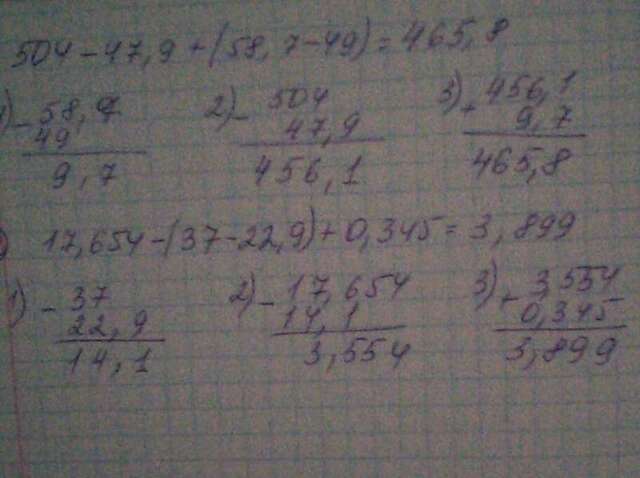 504-47,9+(58,7-49)=465,8
1) - 58,7 2) - 504 3) + 456,1
49 47,9 9,7
9,7 456,1 465,8
17,654-(37-22,9)+0,345=3,899
1) - 37 2) - 17,654 3) + 3,554
22,9 14,1 0,345
14,1 3,554 3,899